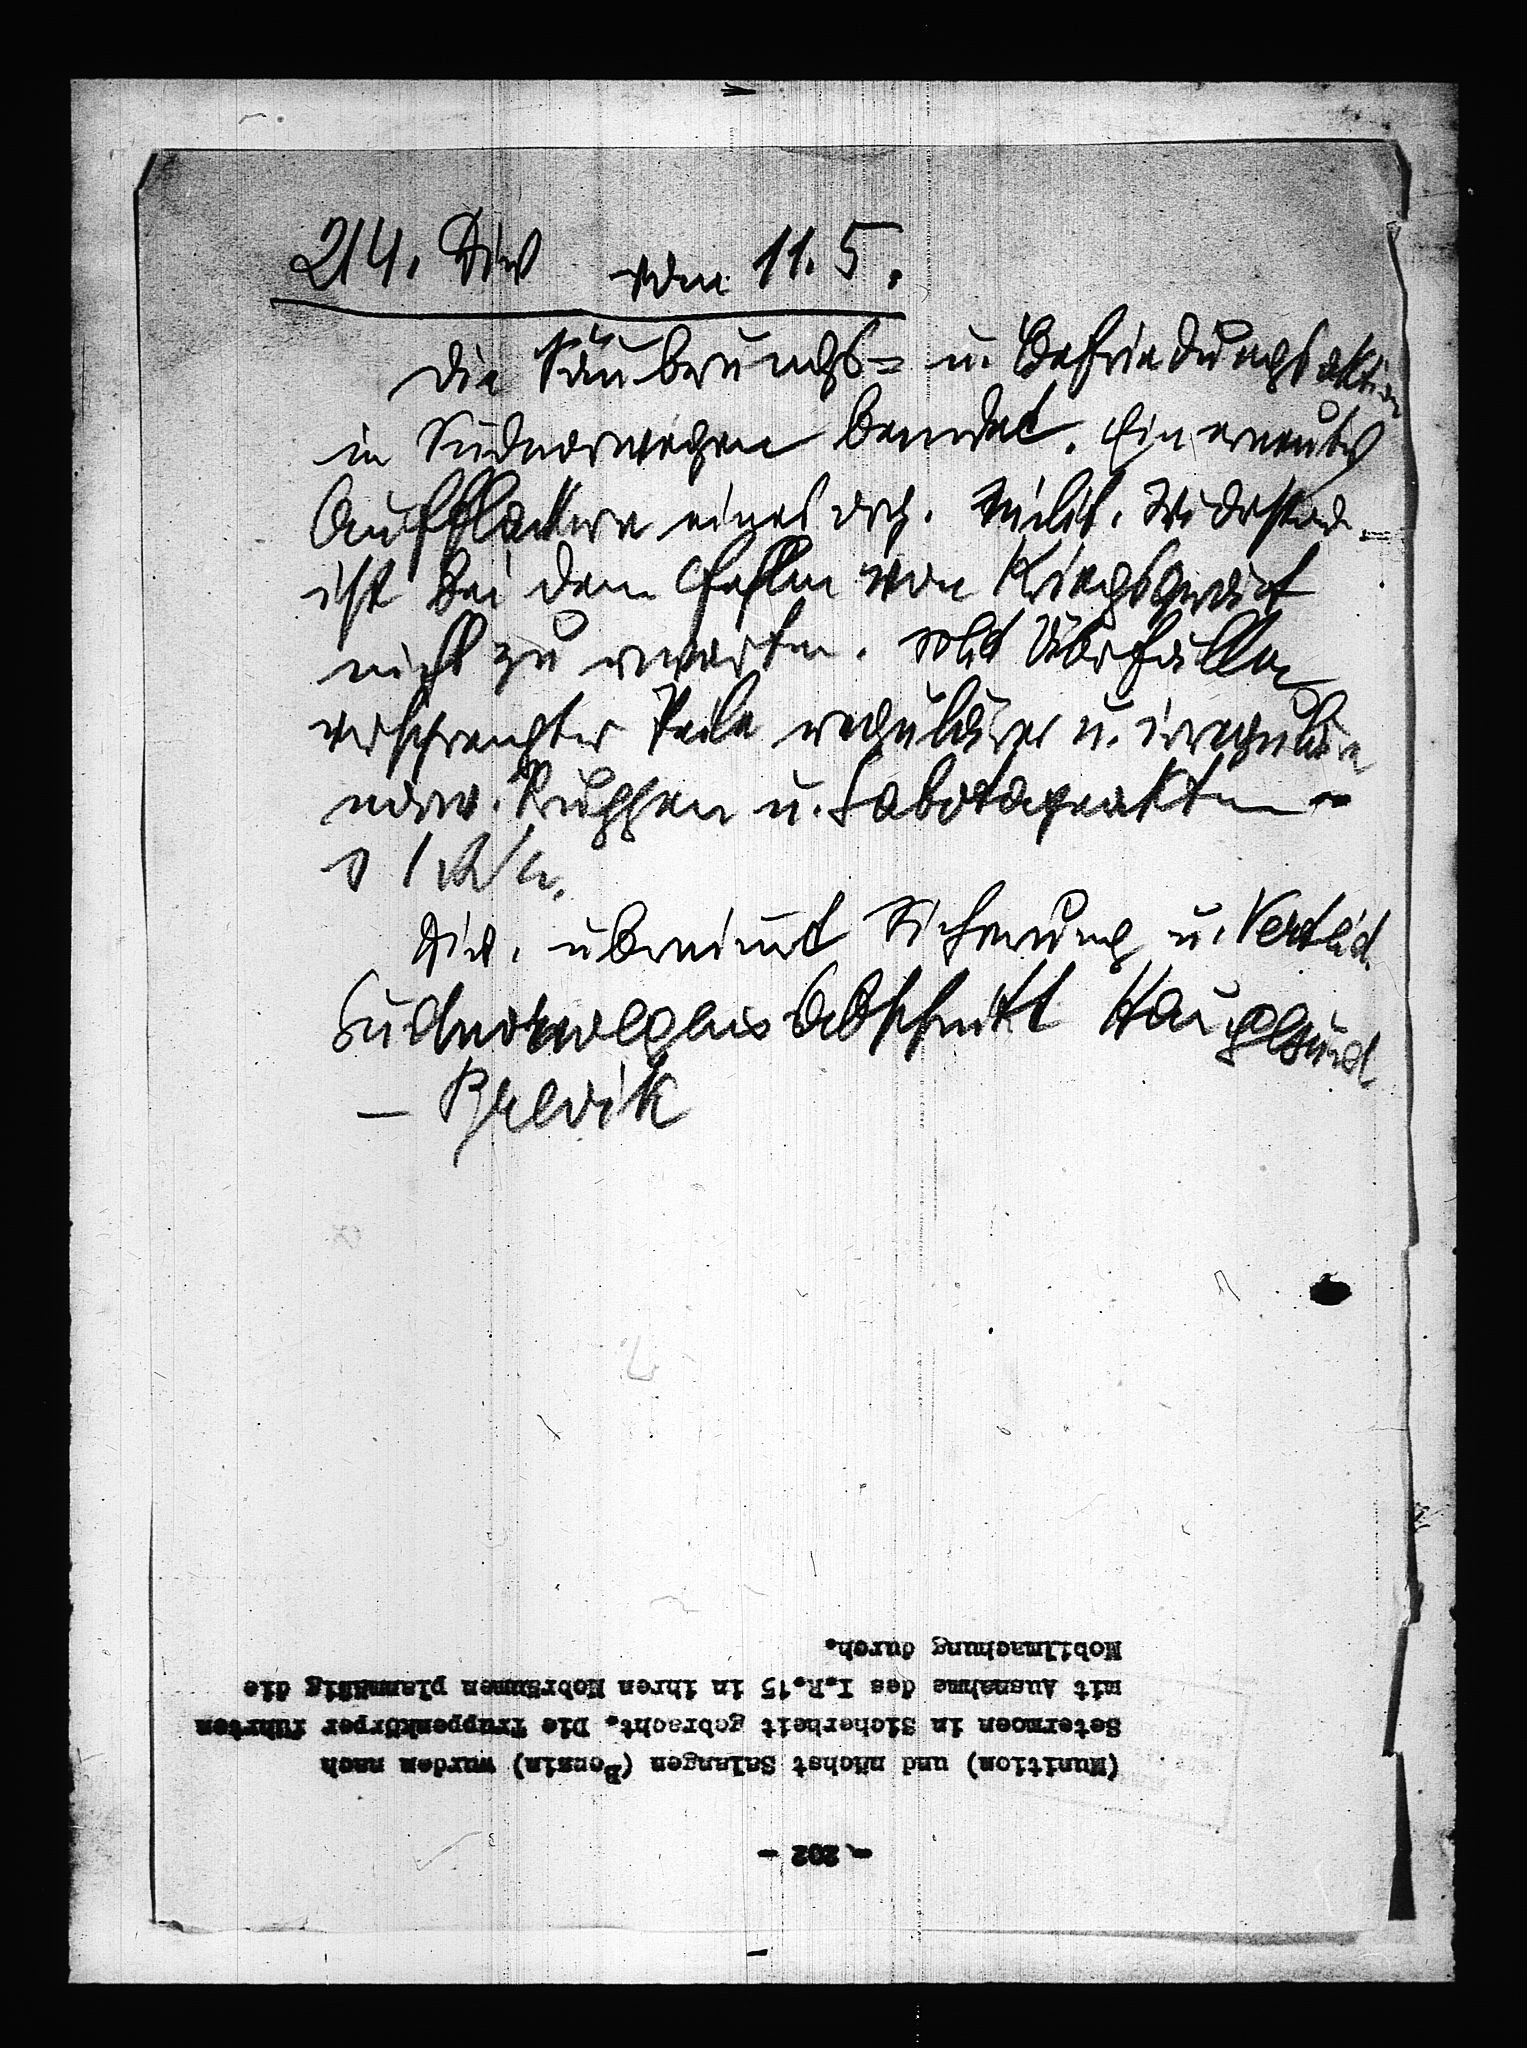 214. Div vom 11.5.
Die Säuberungs- u. Befriedungsaktion
in Südnorwegen beendet. Ein erneutes
Aufflackern eines org. milit. Widerstand.
ist bei dem Fehlen von Kriegsgerät
nicht zu erwarten. Mit Überfällen
versprengter Teile regulärer u. irregulärer
norw. Truppen u. Sabotageakten
Div. übernimmt Sicherung u. Verteid.
Südnorwegens Abschnitt Haugesund
– Brevik
- 202 -
(Munition) und nächst Salangen (Benzin) wurden nach
Setermoen in Sicherheit gebracht. Die Truppenkörper führten
mit Ausnahme des I.R.15 in ihren Mobräumen planmäßig die
Mobilmachung durch.